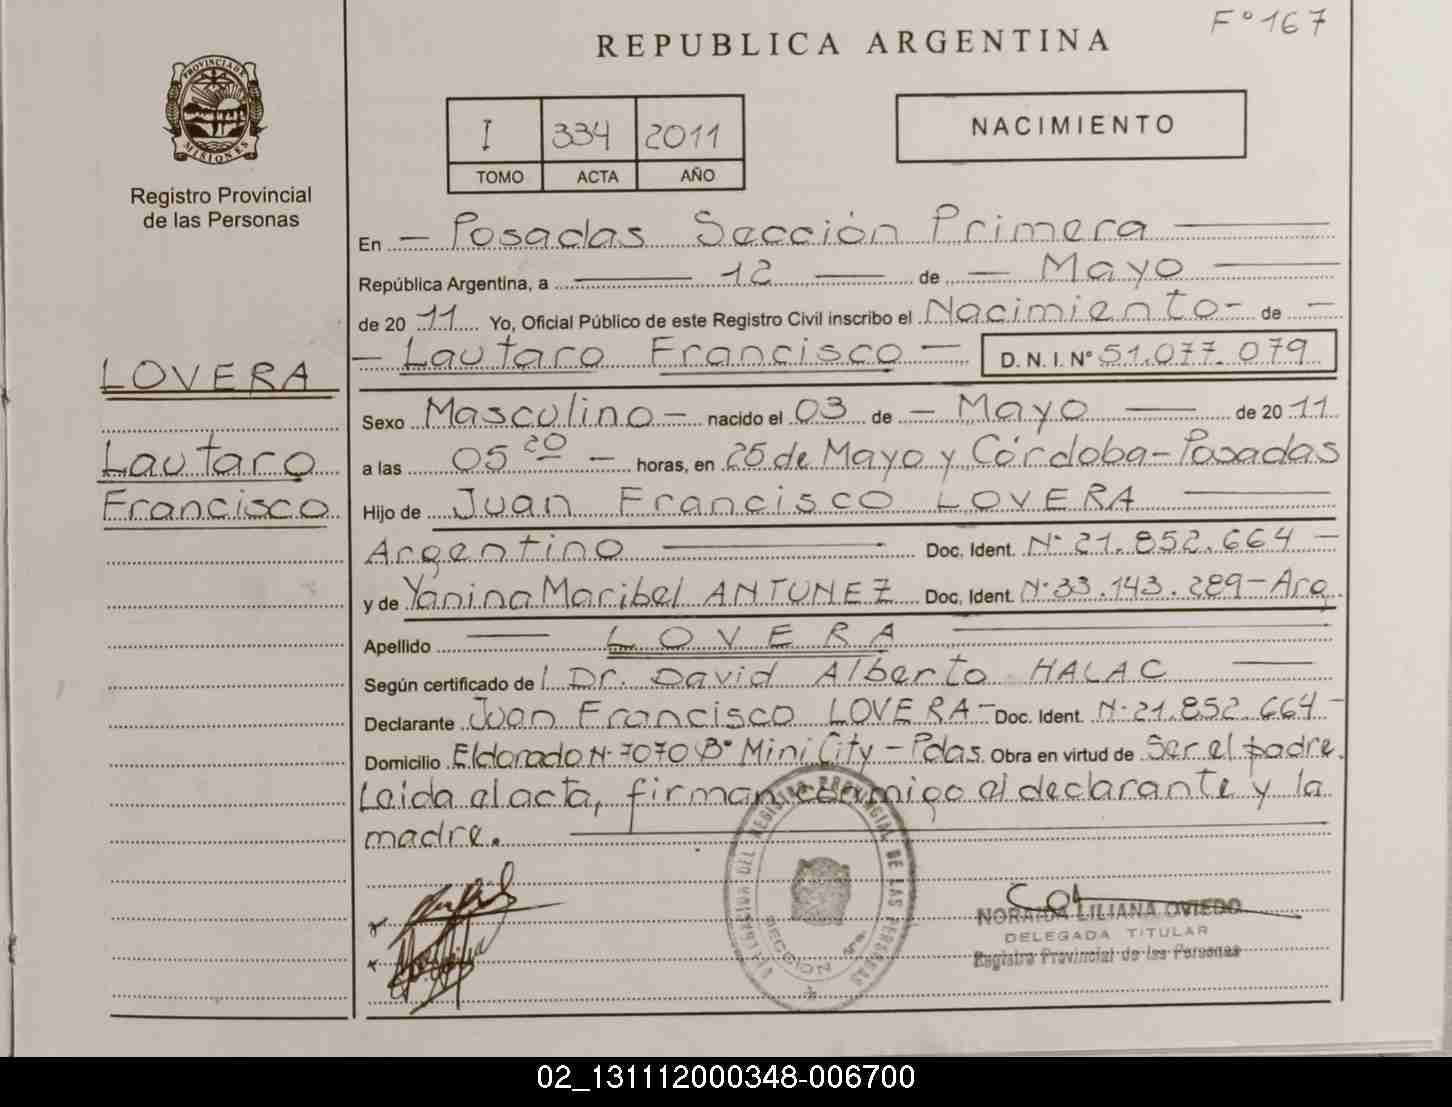 F° 167
REPUBLICA ARGENTINA
PROVINCIA DE
MISIONES
Registro Provincial
de las Personas
I 334 2011
TOMO ACTA AÑO
NACIMIENTO
En - Posadas Sección Primera
República Argentina, a 12 de - Mayo
de 20 11 Yo, Oficial Público de este Registro Civil inscribo el Nacimiento - de -
- Lautaro Francisco - D. N. I. N° 51.077.079
LOVERA
Lautaro
Francisco
Sexo Masculino - nacido el 03 de - Mayo de 20 11
a las 05 20 - horas, en 25 de Mayo y Córdoba - Posadas
Hijo de Juan Francisco LOVERA
Argentino Doc. Ident. N° 21.852.664 -
y de Yanina Maribel ANTUNEZ Doc. Ident. N° 33.143.289 - Arg.
Apellido LOVERA
Según certificado de Dr. David Alberto HALAC
Declarante Juan Francisco LOVERA - Doc. Ident. N° 21.852.664 -
Domicilio Eldorado N° 7070 B° Mini City - Pdas. Obra en virtud de Ser el padre.
Leida el acta, firman conmigo el declarante y la
madre.
DELEGACION DEL REGISTRO PROVINCIAL DE LAS PERSONAS
SECCION 1ra.
NORAIDA LILIANA OVIEDO
DELEGADA TITULAR
Registro Provincial de las Personas
02_131112000348-006700